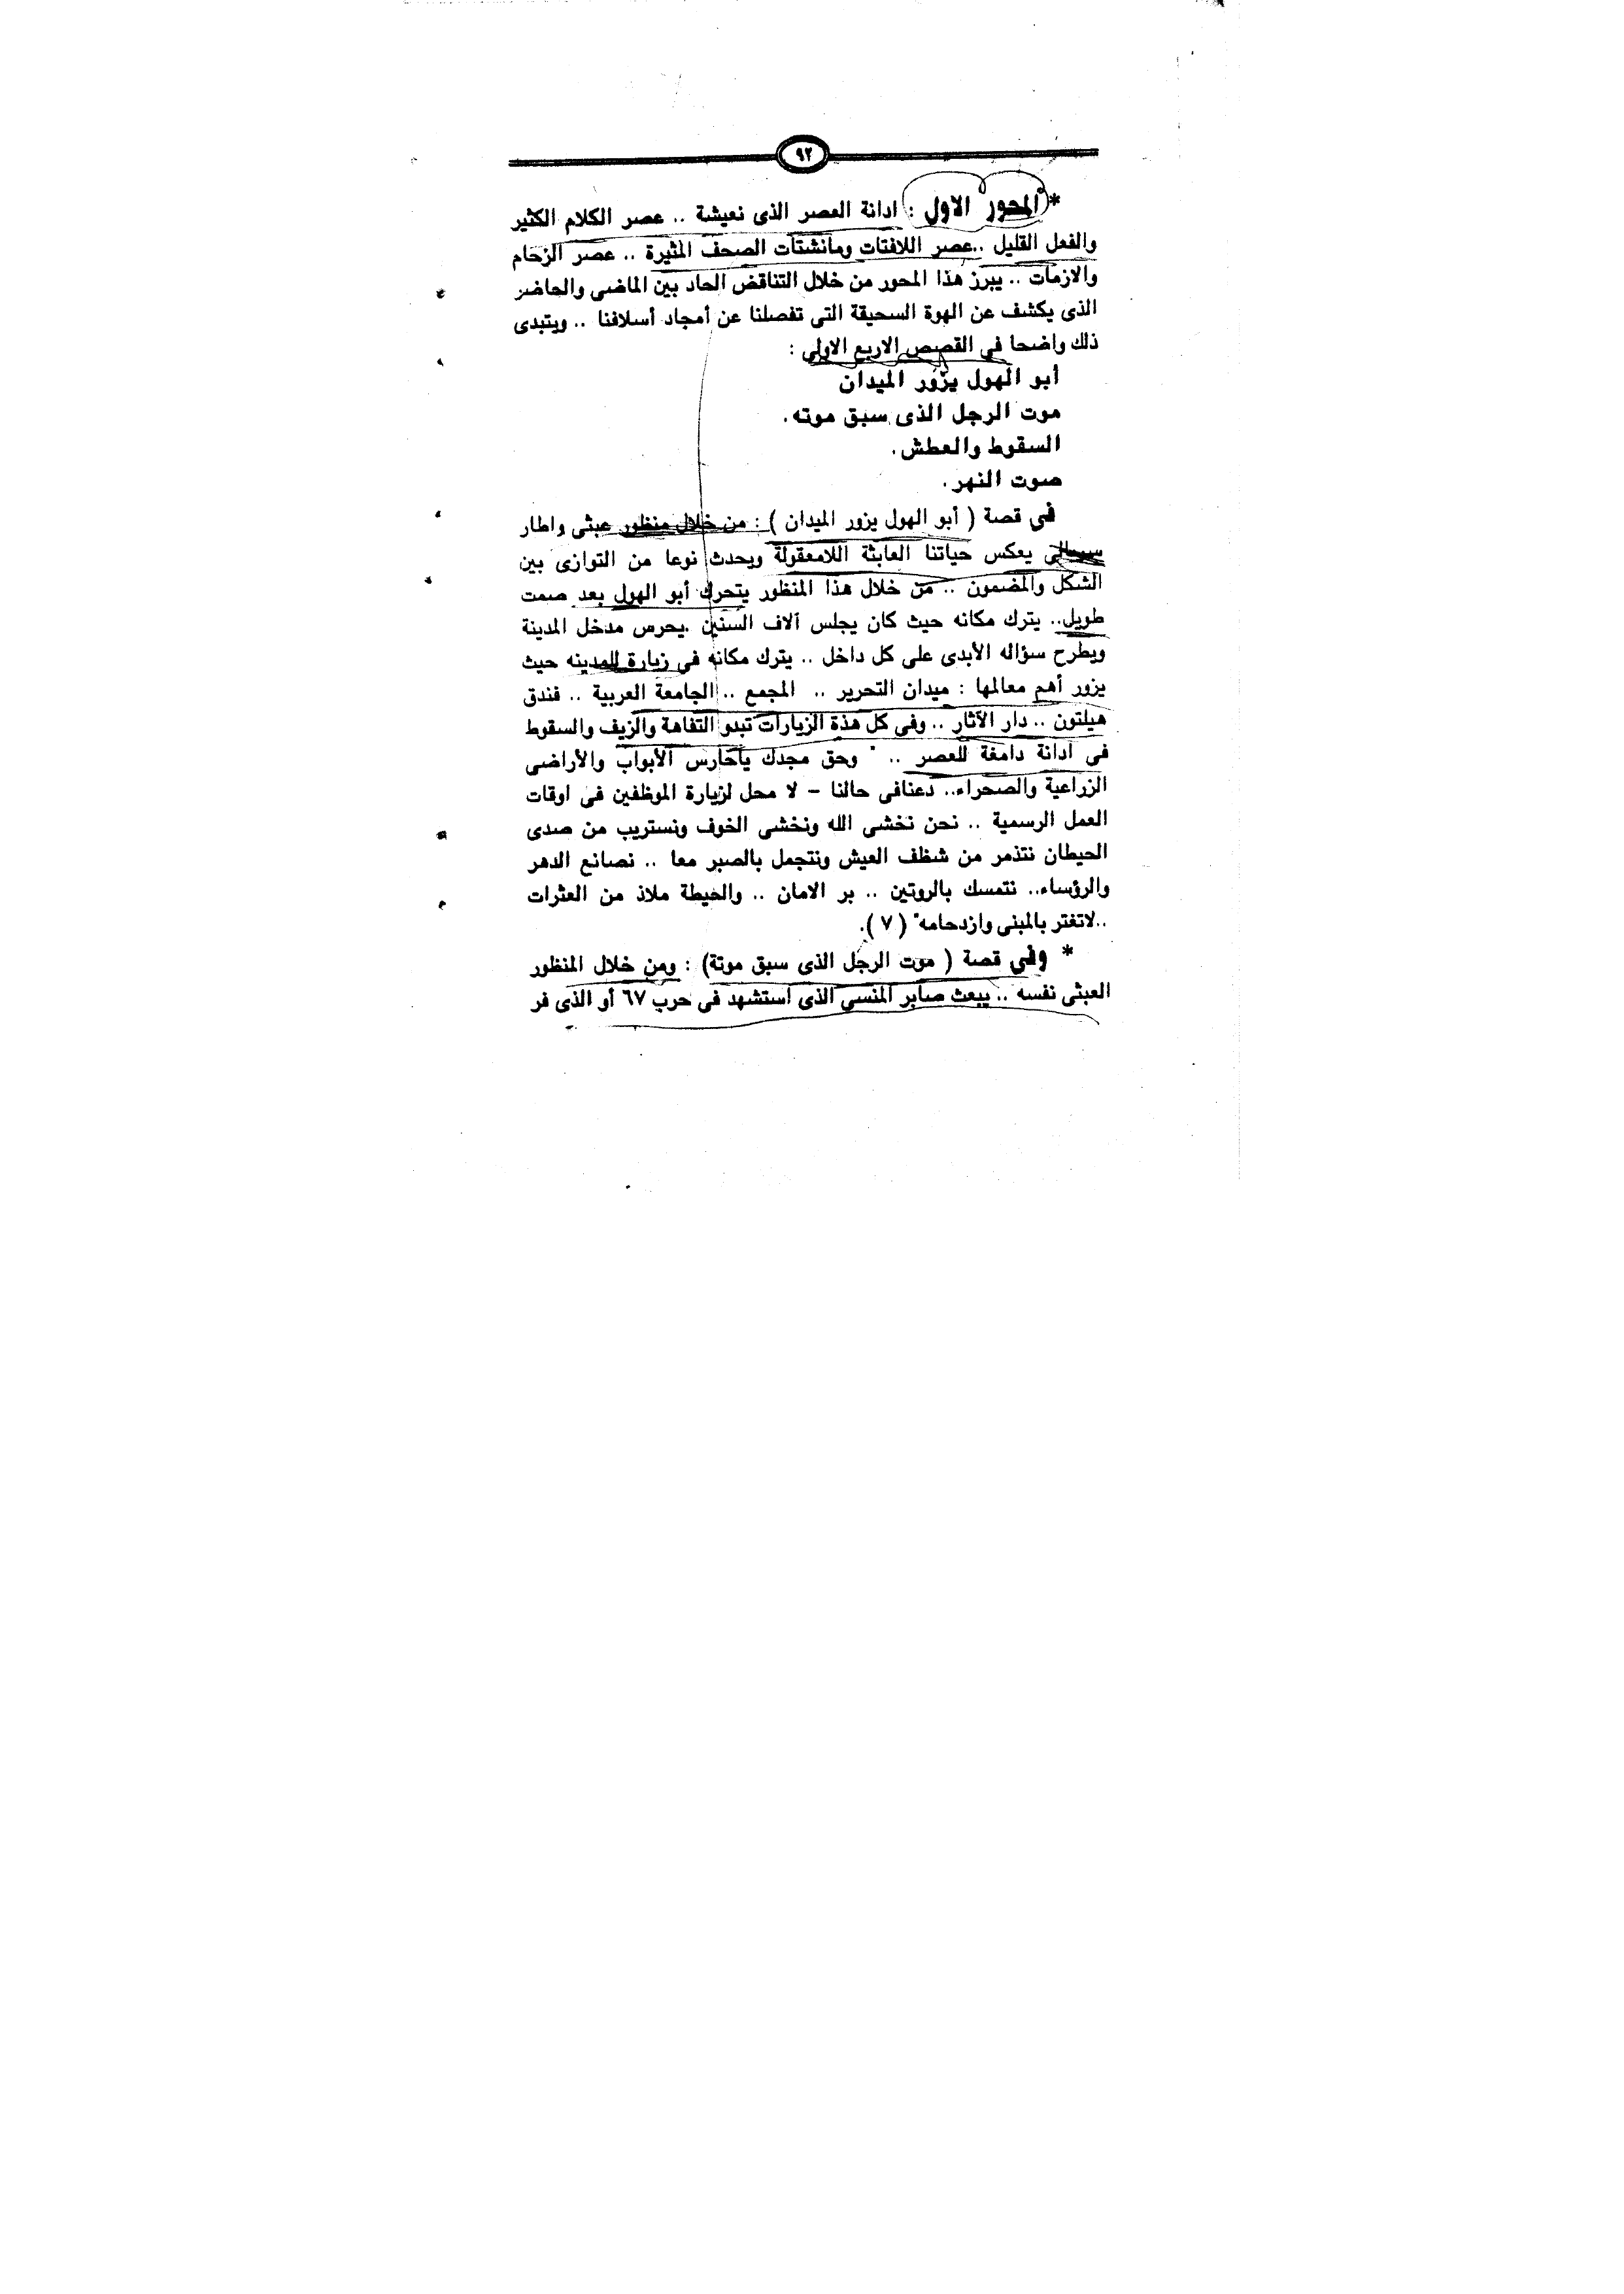 ٩٢
* المحور الاول : ادانة العصر الذى نعيشة .. عصر الكلام الكثير
والفعل القليل ..عصر اللافتات ومانشتات الصحف المثيرة .. عصر الزحام
والازمات .. يبرز هذا المحور من خلال التناقض الحاد بين الماضى والحاضر
الذى يكشف عن الهوة السحيقة التى تفصلنا عن أمجاد أسلافنا .. ويتبدى
ذلك واضحا فى القصص الاربع الاولى :
أبو الهول يزور الميدان
موت الرجل الذى سبق موته.
السقوط والعطش.
صوت النهر.
فى قصة ( أبو الهول يزور الميدان ) : من خلال منظور عبثى واطار
يعكس حياتنا العابثة اللامعقولة ويحدث نوعا من التوازى بين
الشكل والمضمون .. من خلال هذا المنظور يتحرك أبو الهول بعد صمت
طويل.. يترك مكانه حيث كان يجلس آلاف السنين .يحرس مدخل المدينة
ويطرح سؤاله الأبدى على كل داخل .. يترك مكانه فى زيارة للمدينه حيث
يزور أهم معالمها : ميدان التحرير .. المجمع .. الجامعة العربية .. فندق
هيلتون .. دار الآثار .. وفى كل هذة الزيارات تبدو التفاهة والزيف والسقوط
فى ادانة دامغة للعصر .. " وحق مجدك ياحارس الأبواب والأراضى
الزراعية والصحراء.. دعنافى حالنا - لا محل لزيارة الموظفين فى اوقات
العمل الرسمية .. نحن نخشى الله ونخشى الخوف ونستريب من صدى
الحيطان نتذمر من شظف العيش ونتجمل بالصبر معا .. نصانع الدهر
والرؤساء.. نتمسك بالروتين .. بر الامان .. والحيطة ملاذ من العثرات
..لاتغتر بالمبنى وازدحامه" ( ٧ ).
* وفى قصة ( موت الرجل الذى سبق موتة) : ومن خلال المنظور
العبثى نفسه .. يبعث صابر المنسى الذى استشهد فى حرب ٦٧ أو الذى فر